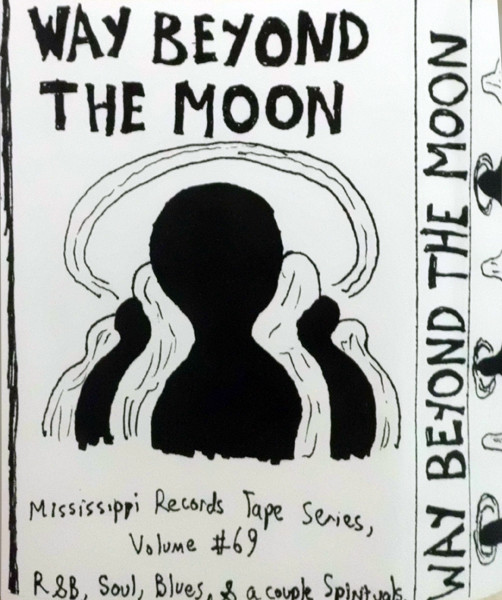 WAY BEYOND
THE MOON
Mississippi Records Tape Series,
Volume #69
R&B, Soul, Blues, & a couple Spirituals
WAY BEYOND THE MOON